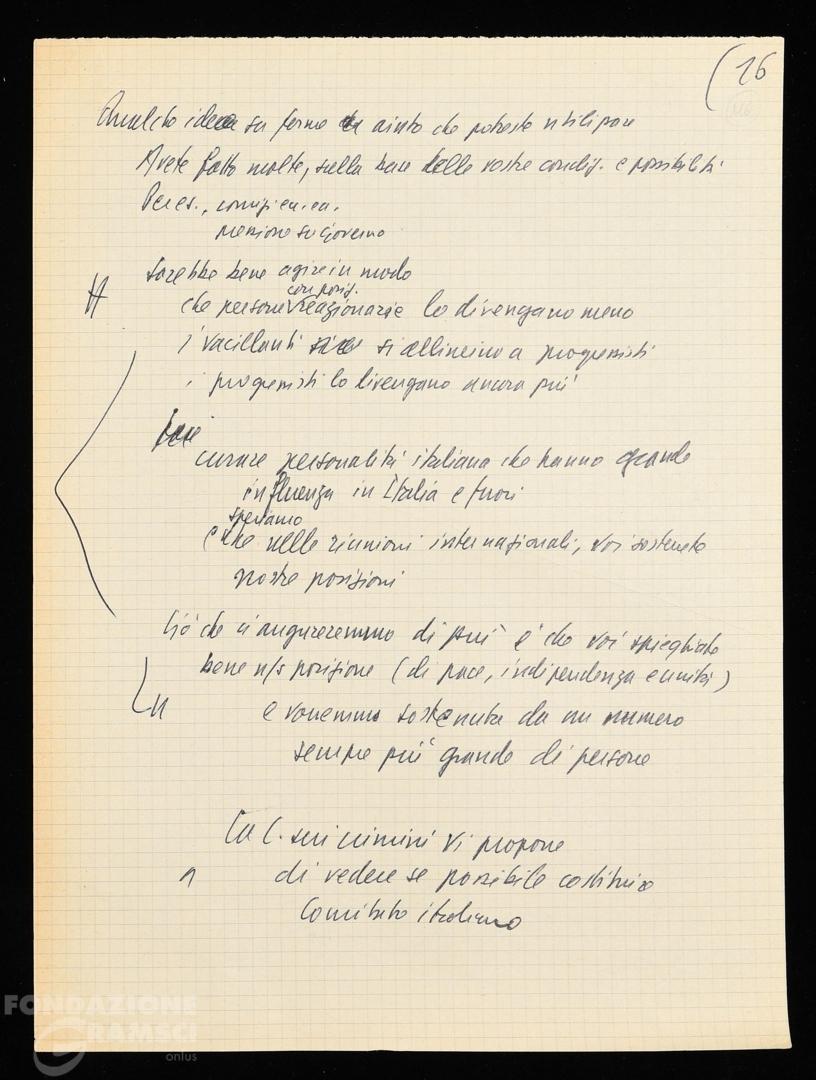 (16
Qualche idea su forme di aiuto che potreste utilizzare
Avete fatto molte, sulla base delle vostre condiz. e possibilità
Per es.,
pressione su governo
Sarebbe bene agire in modo
con posiz.
che persone reazionarie lo divengano meno
i vacillanti si allineino a progressisti
i progressisti lo divengano ancora più
curare personalità italiane che hanno grande
influenza in Italia e fuori
speriamo
che nelle riunioni internazionali, voi sosteniate
nostre posizioni
Ciò che ci augureremmo di più è che voi spieghiate
bene n/s posizione (di pace, indipendenza e unità)
e vorremmo sostenuta da un numero
sempre più grande di persone
C. sui crimini vi propone
di vedere se possibile costituire
Comitato italiano
FONDAZIONE
GRAMSCI
onlus